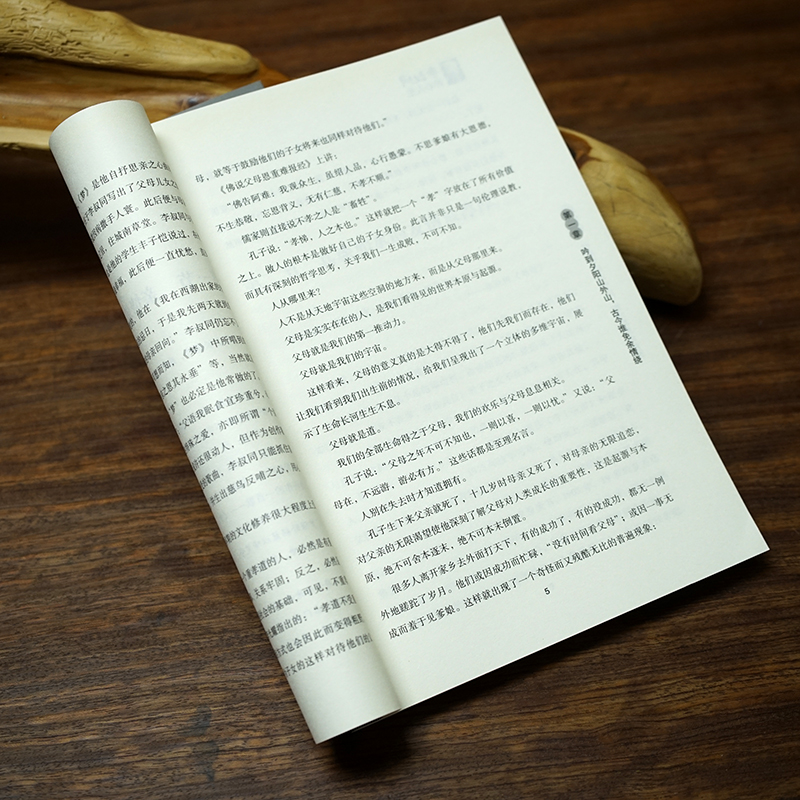 《梦》是他自抒思亲之心
李叔同写出了父母儿女之
撒手人寰。此后便与
，住城南草堂。李叔同
的学生丰子恺说过，
，此后便一直忧愁，
他在《我在西湖出家的
日，于是我先两天就
亲回向。”李叔同仍忘不
而知，《梦》中所唱
恩其永垂”等，当然
”也必定是他常做的
“父语我眠食宜珍重兮，
之爱，亦即所谓“个
还很动人，但作为创作
的歌曲，李叔同只能抓住
生出慈乌反哺之心，
的文化修养很大程度上
重孝道的人，必然是有
关系牢固；反之，必然
会的基础，可见，不重
指出的：“孝道不
式也会因此而变得粗
子女的这样对待他们的
母，就等于鼓励他们的子女将来也同样对待他们。”
《佛说父母恩重难报经》上讲：
“佛告阿难：我观众生，虽绍人品，心行愚蒙。不思爹娘有大恩德，
不生恭敬，忘恩背义，无有仁慈，不孝不顺。”
儒家则直接说不孝之人是“畜牲”。
孔子说：“孝悌，人之本也。”这样就把一个“孝”字放在了所有价值
之上。做人的根本是做好自己的子女身份。此言并非只是一句伦理说教，
而具有深刻的哲学思考，关乎我们一生成败，不可不知。
人从哪里来？
人不是从天地宇宙这些空洞的地方来，而是从父母那里来。
父母是实实在在的人，是我们看得见的世界本原与起源。
父母就是我们的第一推动力。
父母就是我们的宇宙。
这样看来，父母的意义真的是大得不得了，他们先我们而存在，他们
让我们看到我们出生前的情况，给我们呈现出了一个立体的多维宇宙，展
示了生命长河生生不息。
父母就是道。
我们的全部生命得之于父母，我们的欢乐与父母息息相关。
孔子说：“父母之年不可不知也，一则以喜，一则以忧。”又说：“父
母在，不远游，游必有方。”这些话都是至理名言。
人别在失去时才知道拥有。
孔子生下来父亲就死了，十几岁时母亲又死了，对母亲的无限追恋，
对父亲的无限渴望使他深刻了解父母对人类成长的重要性，这是起源与本
原，绝不可舍本逐末，绝不可本末倒置。
很多人离开家乡去外面打天下，有的成功了，有的没成功，都无一例
外地蹉跎了岁月。他们或因成功而忙碌，“没有时间看父母”；或因一事无
成而羞于见爹娘。这样就出现了一个奇怪而又残酷无比的普遍现象：
5
第一章 吟到夕阳山外山，古今谁免余情绕